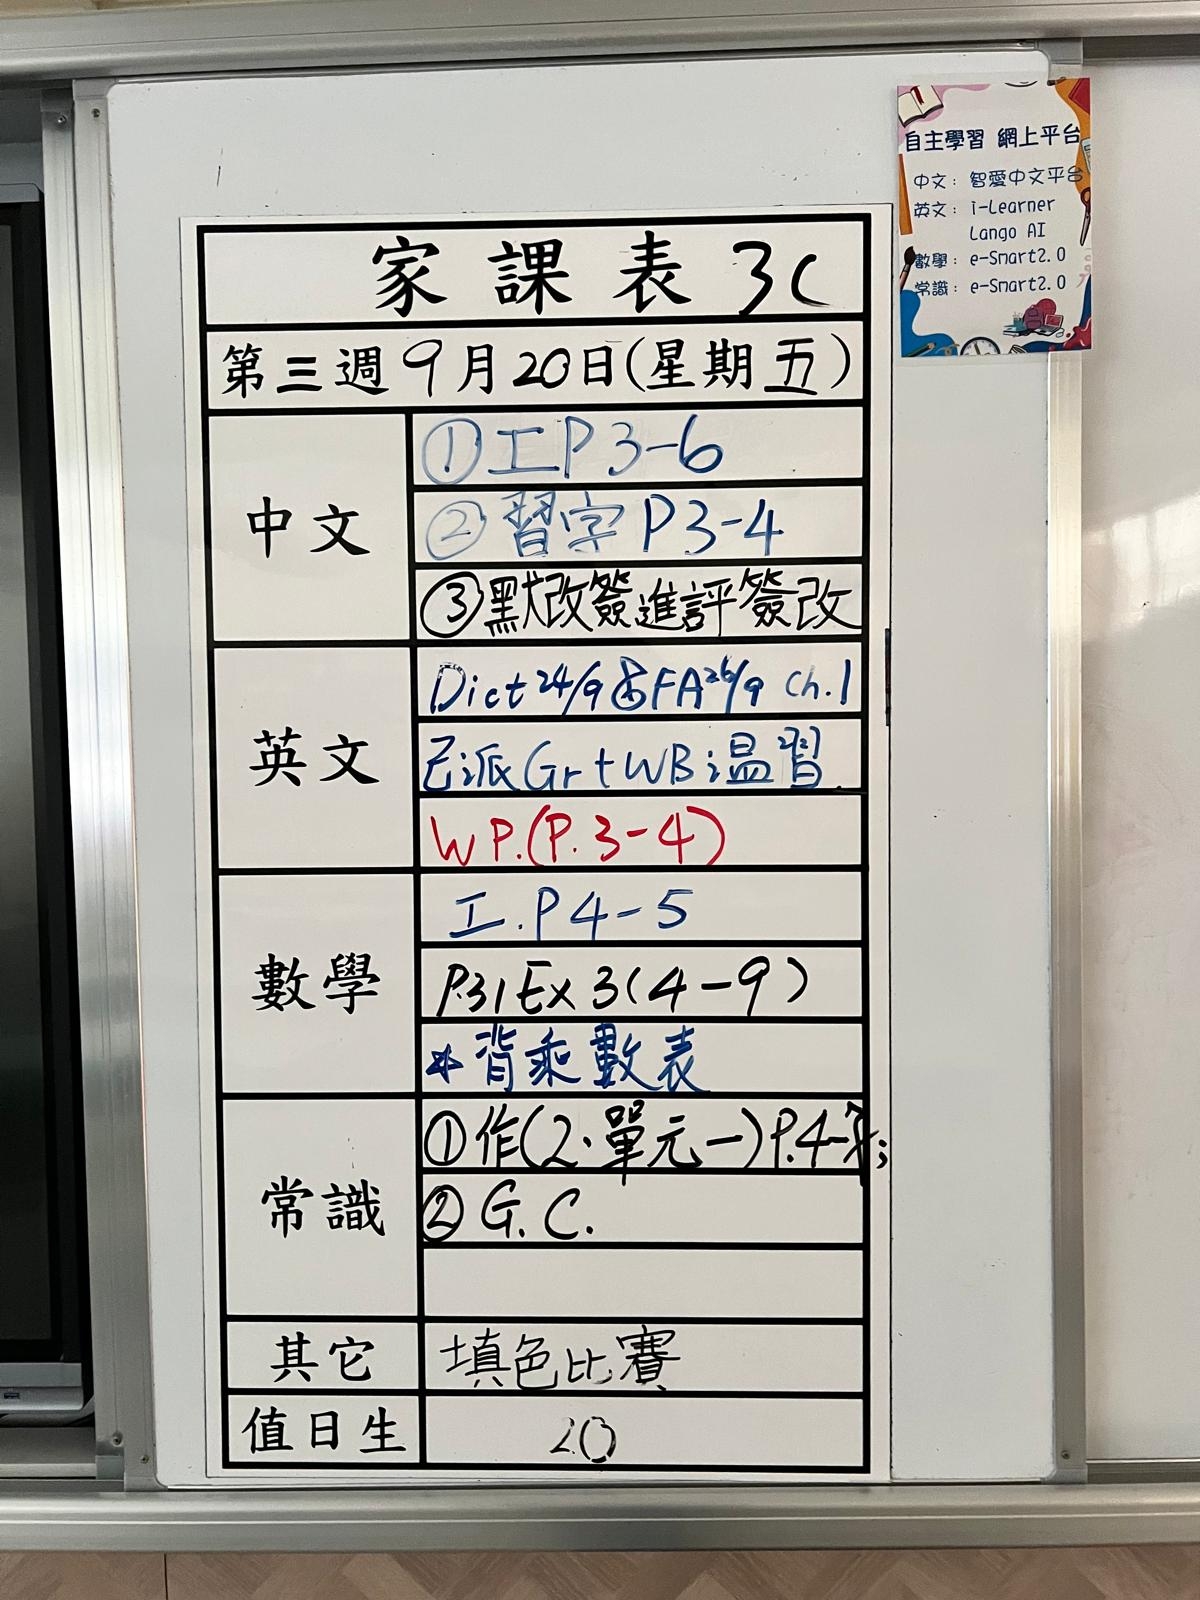 自主學習 網上平台
中文：智愛中文平台
英文：i-Learner
Lango AI
數學：e-Smart2.0
常識：e-Smart2.0
家課表 3C
第三週9月20日(星期五)
中文
①工P3-6
②習字P3-4
③默改簽進評簽改
英文
Dict 24/9 FA 26/9 Ch.1
已派Gr+WB;温習
WP.(P.3-4)
數學
工.P4-5
P.31Ex3(4-9)
*背乘數表
常識
①作(2.單元一)P.4-
②G.C.
其它
填色比賽
值日生
20